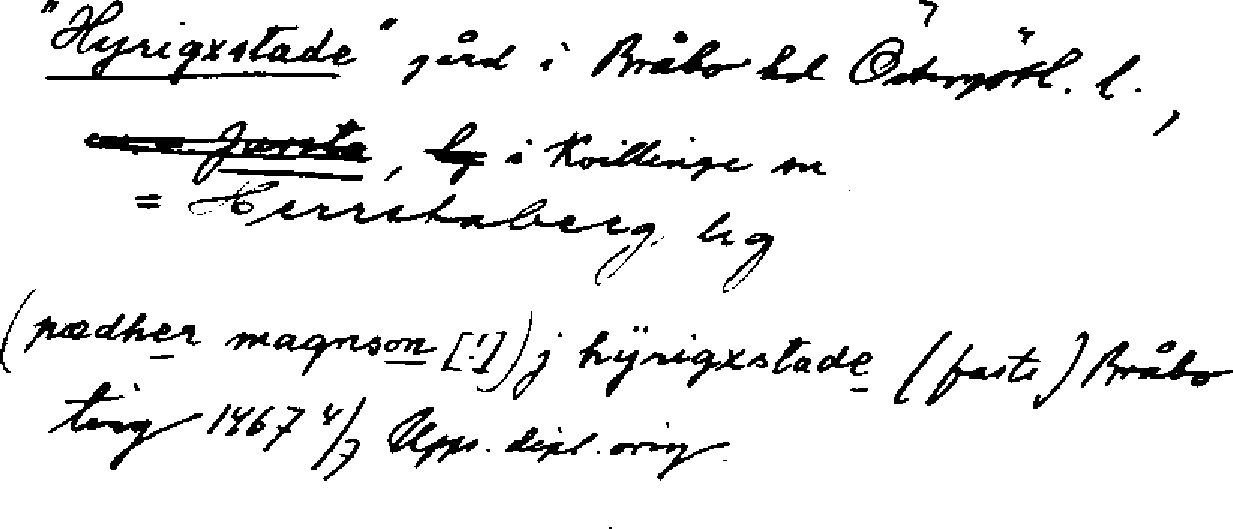 "Hyrigxstade" gård i Bråbo hd Östergötl. l.,
i Kvillinge sn
= Herrstaberg, by
(pædher magnson [!]) j hÿrigxstade (faste) Bråbo
ting 1467 4/7 Upps. dipl. orig.